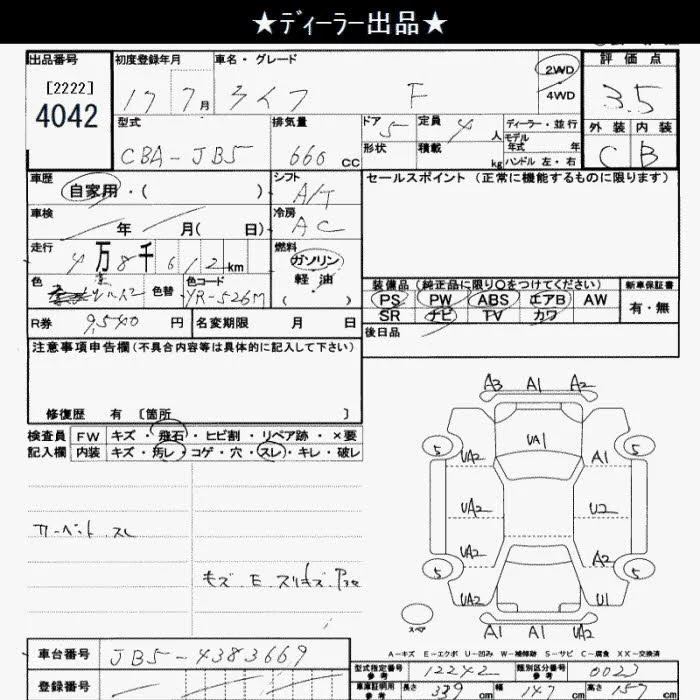 ★ディーラー出品★
出品番号 初度登録年月 車名・グレード 2WD 4WD 評価点
[2222]
4042 17 7月 ライフ F 3.5
型式 排気量 ドア 定員 ディーラー・並行 外装 内装
CBA-JB5 660 cc 5 4人 モデル年式 年 C B
形状 積載 kg ハンドル 左・右
車歴 シフト セールスポイント (正常に機能するものに限ります)
自家用・( ) A/T
車検 年 月( 日) 冷房 AC
走行 4万8千612km 燃料 ガソリン 軽油 ( )
色 色替 色コード YR-526M
装備品 (純正品に限り○をつけてください) 新車保証書
PS PW ABS エアB AW 有・無
SR ナビ TV カワ
R券 9,540円 名変期限 月 日 後日品
注意事項申告欄(不具合内容等は具体的に記入して下さい)
修復歴 有 〔箇所 〕
検査員 FW キズ・飛石・ヒビ割・リペア跡・×要
記入欄 内装 キズ・汚レ・コゲ・穴・スレ・キレ・破レ
カーペット スレ
A3 A1 A2
UA1
5 UA2 A1 5
UA2 U2
UA2 A2
5 UA2 U1 5
スペア A1 A1 A2
A-キズ E-エクボ U-凹み W-補修跡 S-サビ C-腐食 XX-交換済
車台番号 JB5-4383669
型式指定番号 参考 12242 類別区分番号 参考 0023
登録番号
車庫証明用 参考 長さ 339cm 幅 147cm 高さ cm